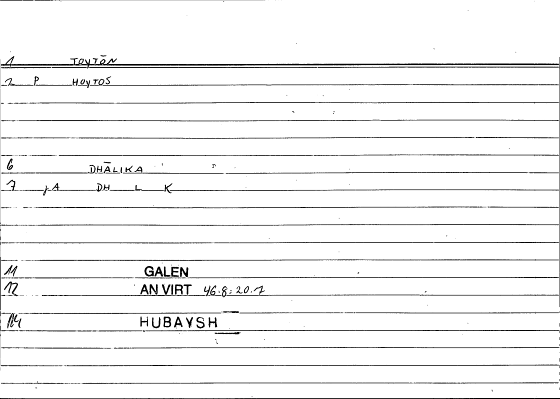 1 TOYTŌN
2 P HOYTOS
6 DHĀLIKA
7 JA DH L K
11 GALEN
12 AN VIRT 46.8:20.7
14 HUBAYSH